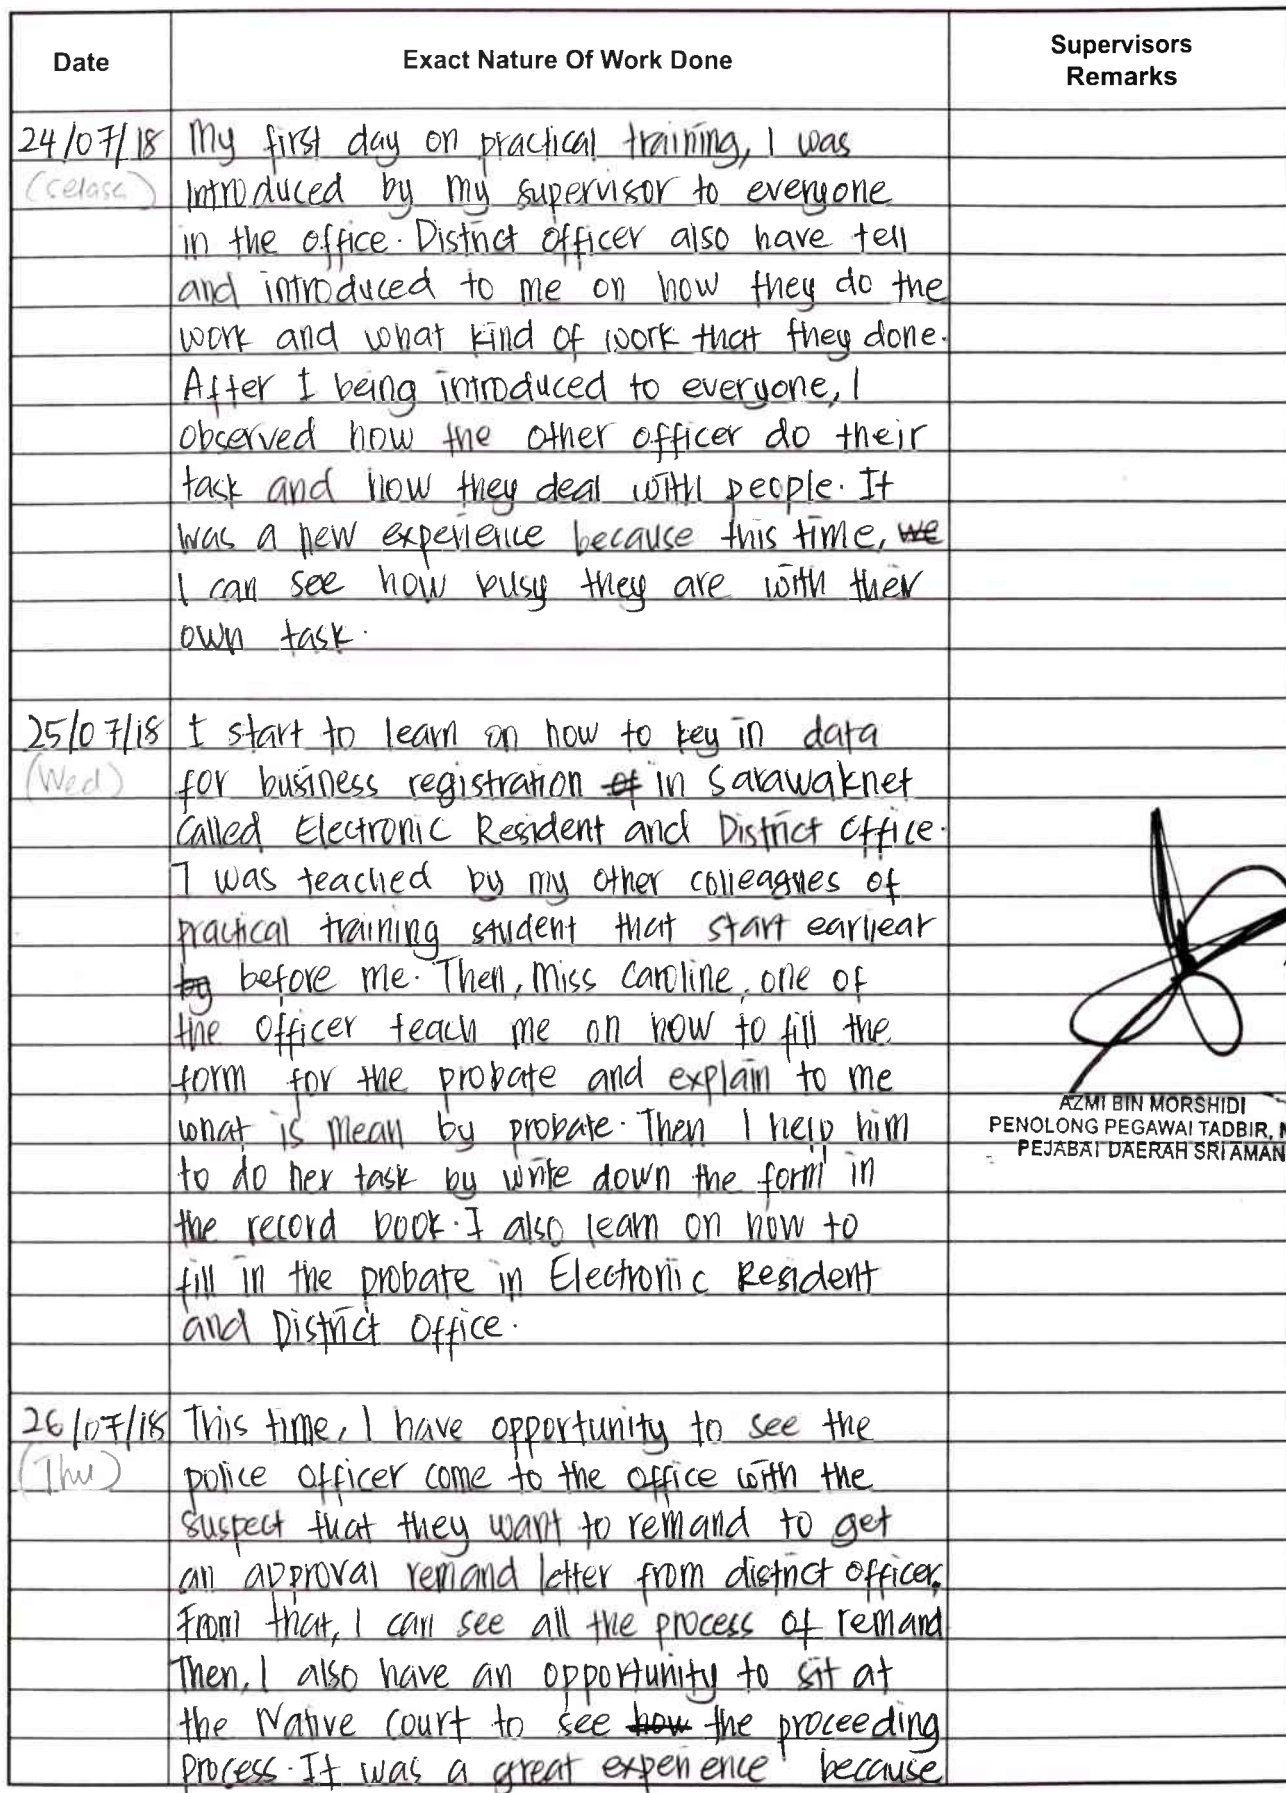 Date Exact Nature Of Work Done Supervisors
Remarks
24/07/18 My first day on practical training, I was
(selasa) introduced by my supervisor to everyone
in the office. District officer also have tell
and introduced to me on how they do the
work and what kind of work that they done.
After I being introduced to everyone, I
observed how the other officer do their
task and how they deal with people. It
was a new experience because this time, we
I can see how busy they are with their
own task.
25/07/18 I start to learn on how to key in data
(Wed) for business registration of in Sarawaknet
called Electronic Resident and District Office.
I was teached by my other colleagues of
practical training student that start earliear
by before me. Then, Miss Caroline, one of
the officer teach me on how to fill the
form for the probate and explain to me
what is mean by probate. Then I help him
to do her task by write down the form in
the record book. I also learn on how to
fill in the probate in Electronic Resident
and District Office.
AZMI BIN MORSHIDI
PENOLONG PEGAWAI TADBIR, N
PEJABAT DAERAH SRI AMAN
26/07/18 This time, I have opportunity to see the
(Thu) police officer come to the office with the
suspect that they want to remand to get
an approval remand letter from district officer.
From that, I can see all the process of remand
Then, I also have an opportunity to sit at
the Native Court to see how the proceeding
process. It was a great experience because